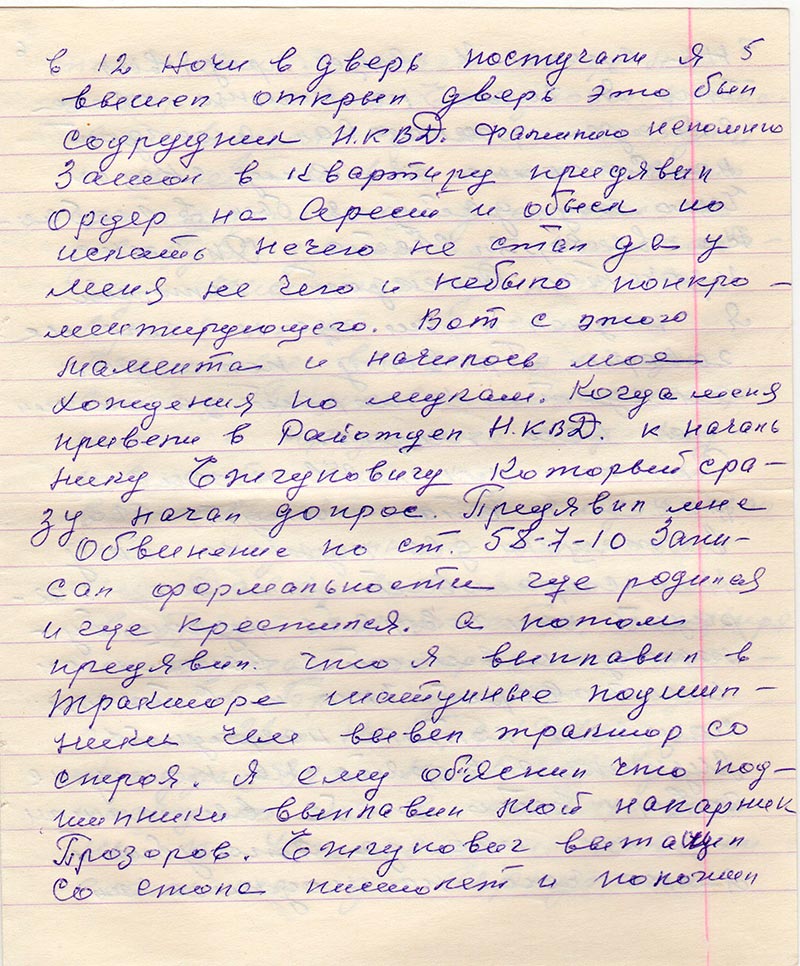 в 12 Ночи в дверь постучали я 5
вышел открыл дверь это был
содрудник Н.КВД. фамилию непомню
Зашол в квартиру предявил
Ордер на Арест и обыск но
искать нечего не стал да у
меня не чего и небыло понкро-
ментирующего. Вот с этого
мамента и началось мое
хождения по мукам. Когда меня
привели в Райотдел Н.КВД. к началь
нику Ежгуновичу Который сра-
зу начал допрос. Предявил мне
Обвинение по ст. 58-7-10 Запи-
сал формальности где родился
и где крестился. а потом
предявил. что я выплавил в
тракторе шатунные подшип-
ники чем вывел трактор со
строя. я ему обяснил что под-
шипники выплавил мой напарник
Прозоров. Ежгунович вытащил
со стола пистолет и положил